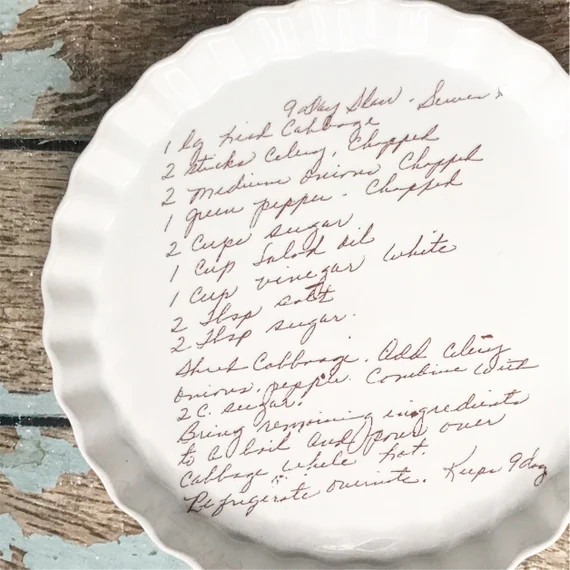 9 Day Slaw - Serves
1 lg head Cabbage
2 sticks Celery, Chopped
2 medium onions Chopped
1 green pepper - Chopped
2 Cups sugar
1 Cup Salad oil
1 Cup vinegar White
2 Tbsp salt
2 Tbsp sugar.
Shred Cabbage. Add Celery
onions, pepper. Combine with
2 C. sugar.
Bring remaining ingredients
to a boil and pour over
Cabbage while hot.
Refrigerate overnite. Keeps 9 day